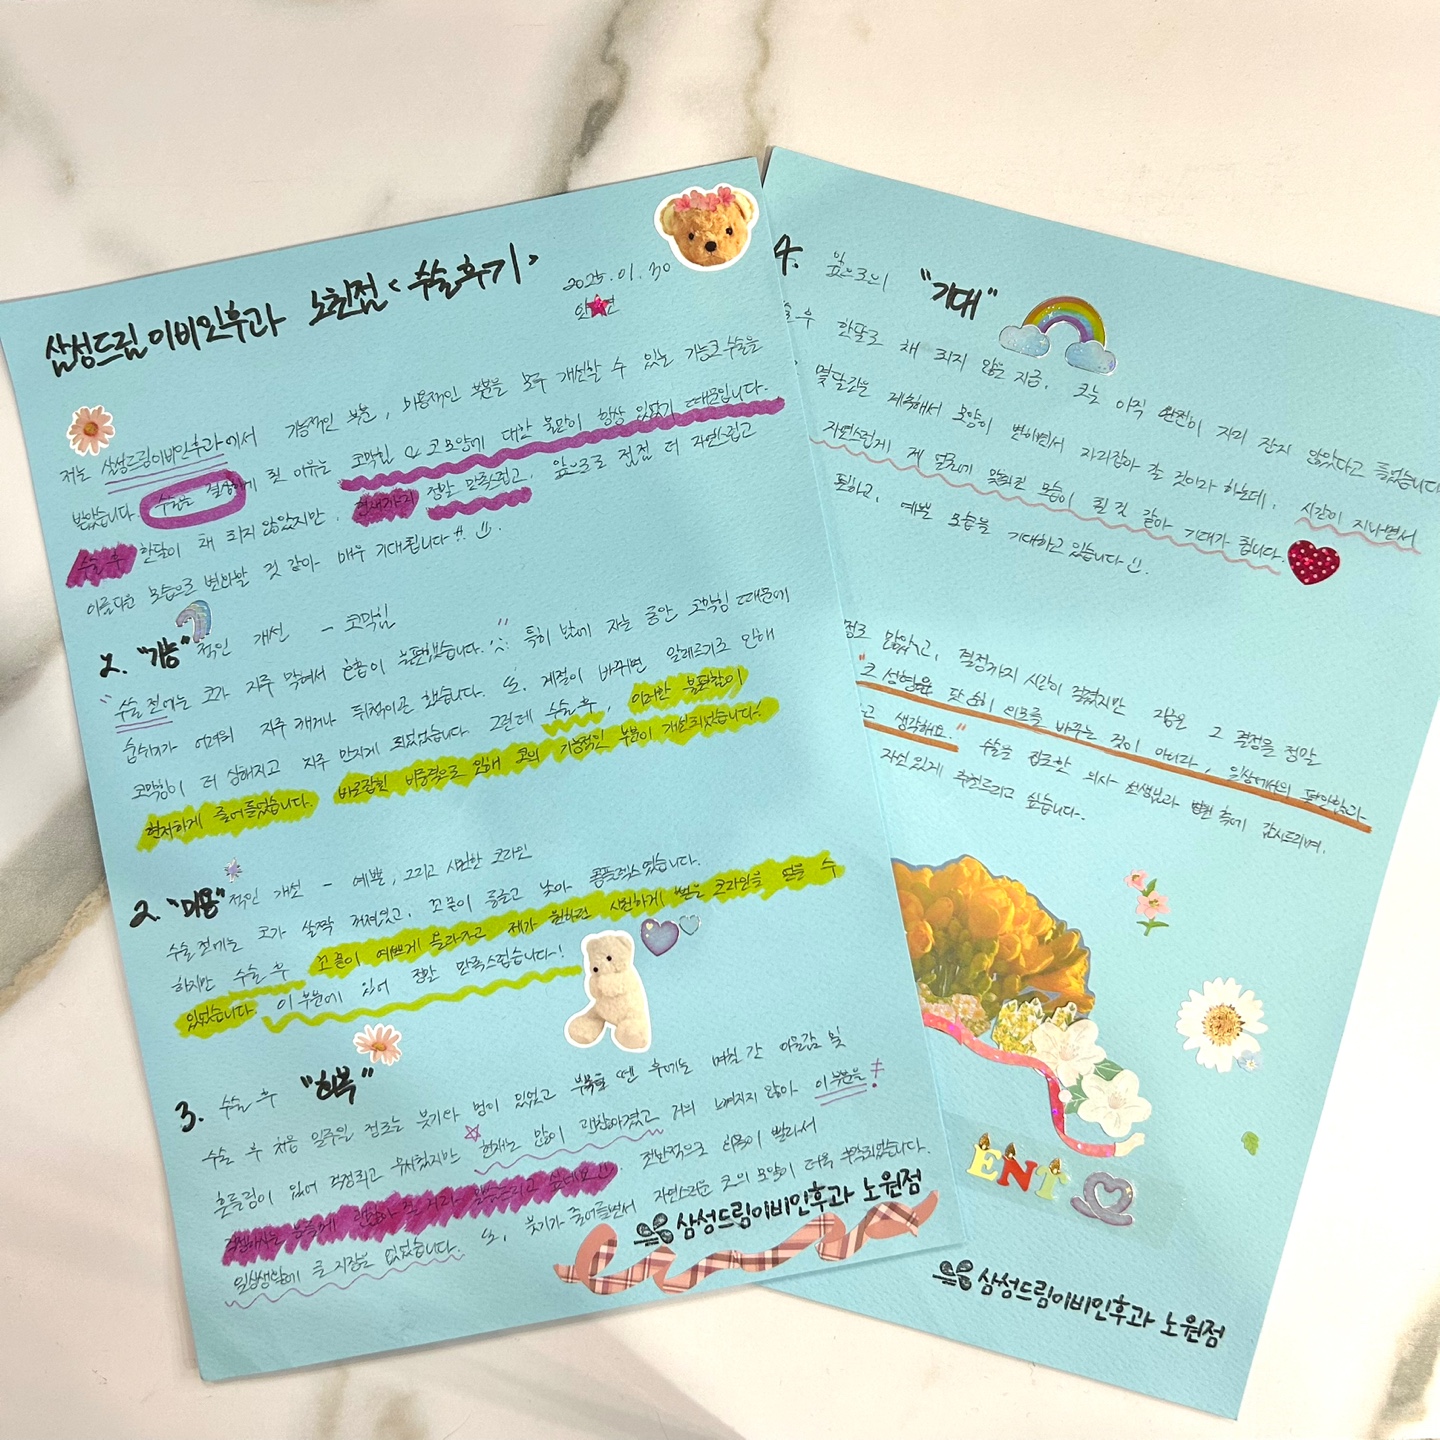 삼성드림이비인후과 노원점 <수술후기>
2025.01.30
안 연
저는 삼성드림이비인후과에서 기능적인 부분, 미용적인 부분을 모두 개선할 수 있는 기능코수술을
받았습니다. 수술을 결심하게 된 이유는 코막힘 & 코모양에 대한 불만이 항상 있었기 때문입니다.
수술 후 한달이 채 되지 않았지만, 현재까지 정말 만족스럽고, 앞으로 점점 더 자연스럽고
아름다운 모습으로 변화할 것 같아 매우 기대됩니다!!
1. "기능"적인 개선 - 코막힘
수술 전에는 코가 자주 막혀서 호흡이 불편했습니다. 특히 밤에 자는 동안 코막힘 때문에
숨쉬기가 어려워 자주 깨거나 뒤척이곤 했습니다. 또, 계절이 바뀌면 알레르기로 인해
코막힘이 더 심해지고 자주 만지게 되었었습니다. 그런데 수술 후, 이러한 불편함이
현저하게 줄어들었습니다. 바로잡힌 비중격으로 인해 코의 기능적인 부분이 개선되었습니다!
2. "미용"적인 개선 - 예쁜, 그리고 시원한 코라인
수술 전에는 코가 살짝 퍼져있고, 코끝이 뭉툭하고 낮아 콤플렉스였습니다.
하지만 수술 후 코끝이 예쁘게 올라가고 제가 원하던 시원하게 뻗은 코라인을 얻을 수
있었습니다. 이 부분에 있어 정말 만족스럽습니다!
3. 수술 후 "회복"
수술 후 처음 일주일 정도는 붓기와 멍이 있었고 부목을 뗀 후에는 며칠 간 이물감 및
흔들림이 있어 걱정되고 무서웠지만 현재는 많이 괜찮아졌고 거의 느껴지지 않아 이 부분을
걱정하시는 분들께 괜찮아 질 거라 말씀드리고 싶네요 전반적으로 회복이 빨라서
일상생활에 큰 지장은 없었습니다. 또, 붓기가 줄어들면서 자연스러운 코의 모양이 더욱 부각되었습니다.
삼성드림이비인후과 노원점
4. 앞으로의 "기대"
후 한달도 채 되지 않은 지금, 코는 아직 완전히 자리 잡지 않았다고 들었습니다
몇달간은 계속해서 모양이 변하면서 자리잡아 갈 것이라 하는데, 시간이 지나면서
자연스럽게 제 얼굴에 맞춰진 모습이 될 것 같아 기대가 됩니다.
예쁜 모습을 기대하고 있습니다
정도 많았고, 결정까지 시간이 걸렸지만 지금은 그 결정을 정말
"코 성형은 단순히 외모를 바꾸는 것이 아니라, 일상에서의 편안함과
고 생각해요." 수술을 집도한 의사 선생님과 병원 측에 감사드리며,
자신있게 추천드리고 싶습니다.
ENT
삼성드림이비인후과 노원점